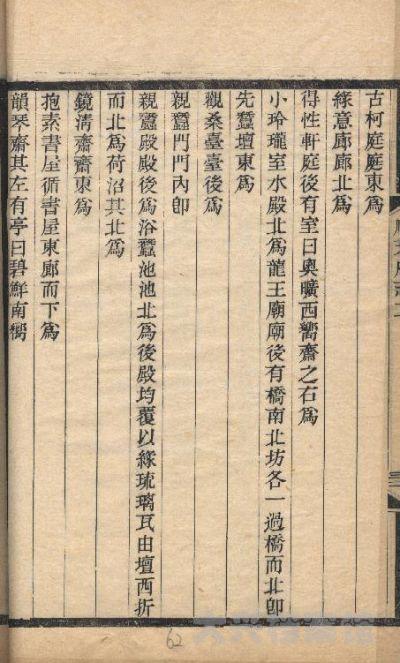 古柯庭庭東爲
綠意廊廊北爲
得性軒庭後有室曰奧曠西嚮齋之右爲
小玲瓏室水殿北爲龍王廟廟後有橋南北坊各一過橋而北卽
先蠶壇東爲
觀桑臺臺後爲
親蠶門門內卽
親蠶殿殿後爲浴蠶池池北爲後殿均覆以綠琉璃瓦由壇西折
而北爲荷沼其北爲
鏡清齋齋東爲
抱素書屋循書屋東廊而下爲
韻琴齋其左有亭曰碧鮮南嚮
62